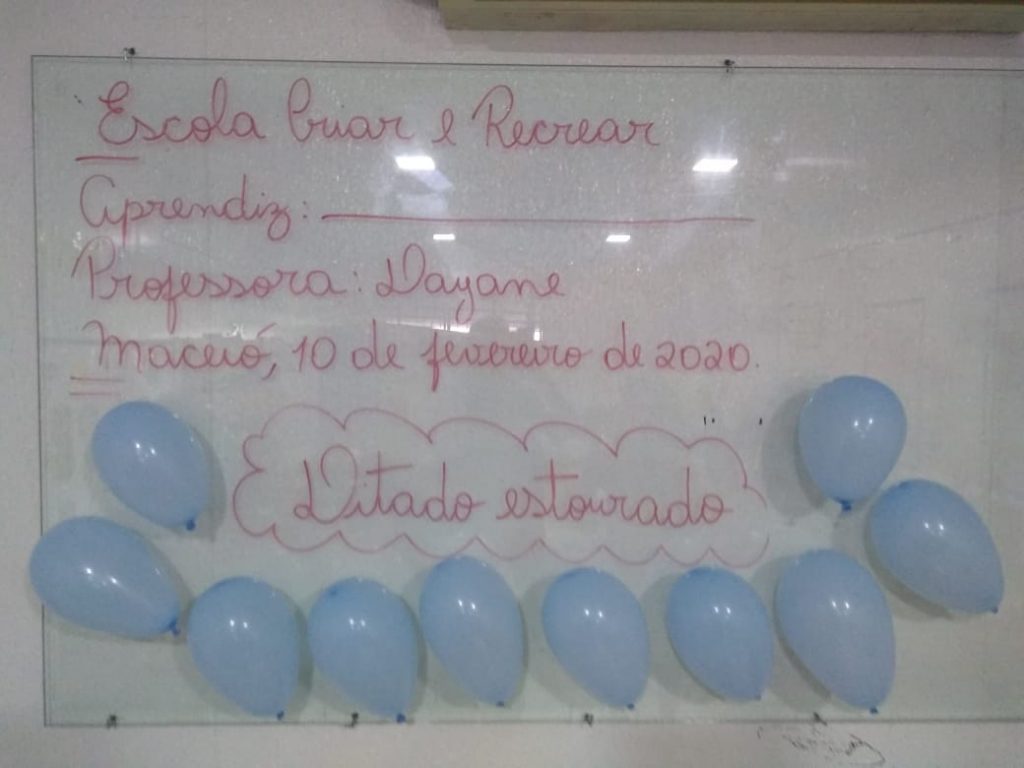 Escola Criar e Recrear
Aprendiz:
Professora: Dayane
Maceió, 10 de fevereiro de 2020.
Ditado estourado